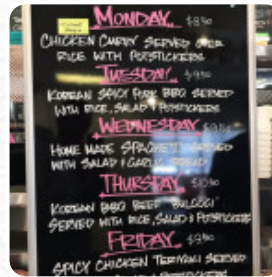 MONDAY
CHICKEN CURRY SERVED OVER
RICE WITH POTSTICKERS
TUESDAY
KOREAN SPICY PORK BBQ SERVED
WITH RICE, SALAD & POTSTICKERS
WEDNESDAY
HOME MADE SPAGHETTI SERVED
WITH SALAD & GARLIC BREAD
THURSDAY
KOREAN BBQ BEEF "BULGOGI"
SERVED WITH RICE, SALAD & POTSTICKERS
FRIDAY
SPICY CHICKEN TERIYAKI SERVED
POTSTICKERS